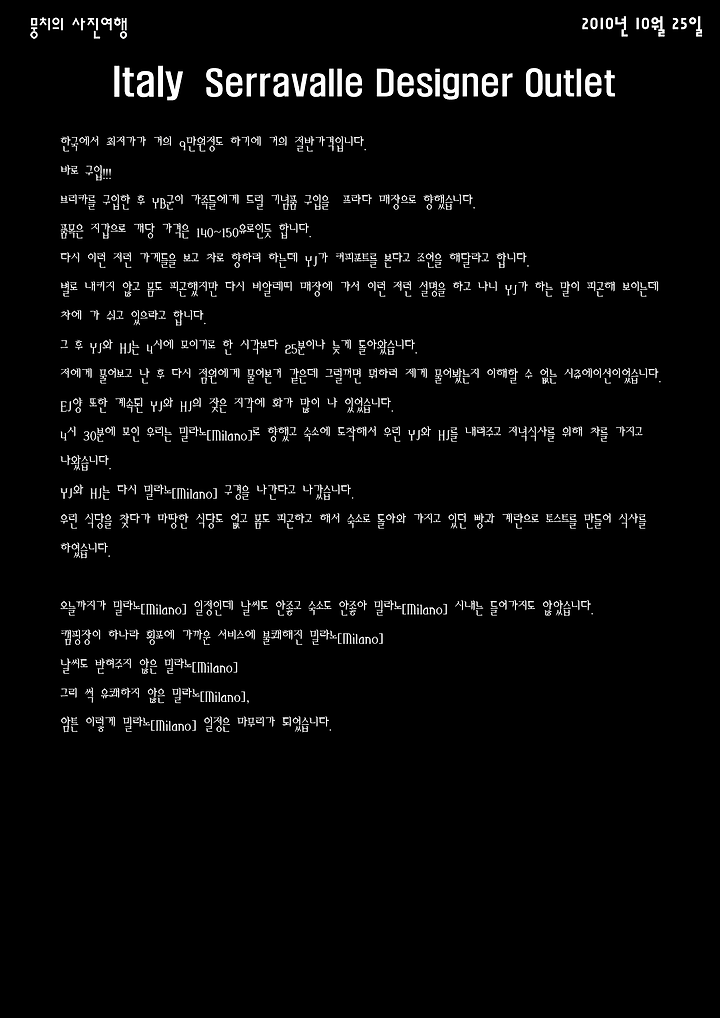 뭉치의 사진여행
2010년 10월 25일
Italy Serravalle Designer Outlet
한국에서 최저가가 거의 9만원정도 하기에 거의 절반가격입니다.
바로 구입!!!
브리카를 구입한 후 YB군이 가족들에게 드릴 기념품 구입을 프라다 매장으로 향했습니다.
품목은 지갑으로 개당 가격은 140~150유로인듯 합니다.
다시 이런 저런 가게들을 보고 차로 향하려 하는데 YJ가 커피포트를 본다고 조언을 해달라고 합니다.
별로 내키지 않고 몸도 피곤했지만 다시 비알레띠 매장에 가서 이런 저런 설명을 하고 나니 YJ가 하는 말이 피곤해 보이는데
차에 가 쉬고 있으라고 합니다.
그 후 YJ와 HJ는 4시에 모이기로 한 시각보다 25분이나 늦게 돌아왔습니다.
저에게 물어보고 난 후 다시 점원에게 물어본거 같은데 그럴꺼면 뭐하러 제게 물어봤는지 이해할 수 없는 시츄에이션이었습니다.
EJ양 또한 계속된 YJ와 HJ의 잦은 지각에 화가 많이 나 있었습니다.
4시 30분에 모인 우리는 밀라노[Milano]로 향했고 숙소에 도착해서 우린 YJ와 HJ를 내려주고 저녁식사를 위해 차를 가지고
나왔습니다.
YJ와 HJ는 다시 밀라노[Milano] 구경을 나간다고 나갔습니다.
우린 식당을 찾다가 마땅한 식당도 없고 몸도 피곤하고 해서 숙소로 돌아와 가지고 있던 빵과 계란으로 토스트를 만들어 식사를
하였습니다.
오늘까지가 밀라노[Milano] 일정인데 날씨도 안좋고 숙소도 안좋아 밀라노[Milano] 시내는 들어가지도 않았습니다.
캠핑장이 하나라 횡포에 가까운 서비스에 불쾌해진 밀라노[Milano]
날씨도 받혀주지 않은 밀라노[Milano]
그리 썩 유쾌하지 않은 밀라노[Milano],
암튼 이렇게 밀라노[Milano] 일정은 마무리가 되었습니다.